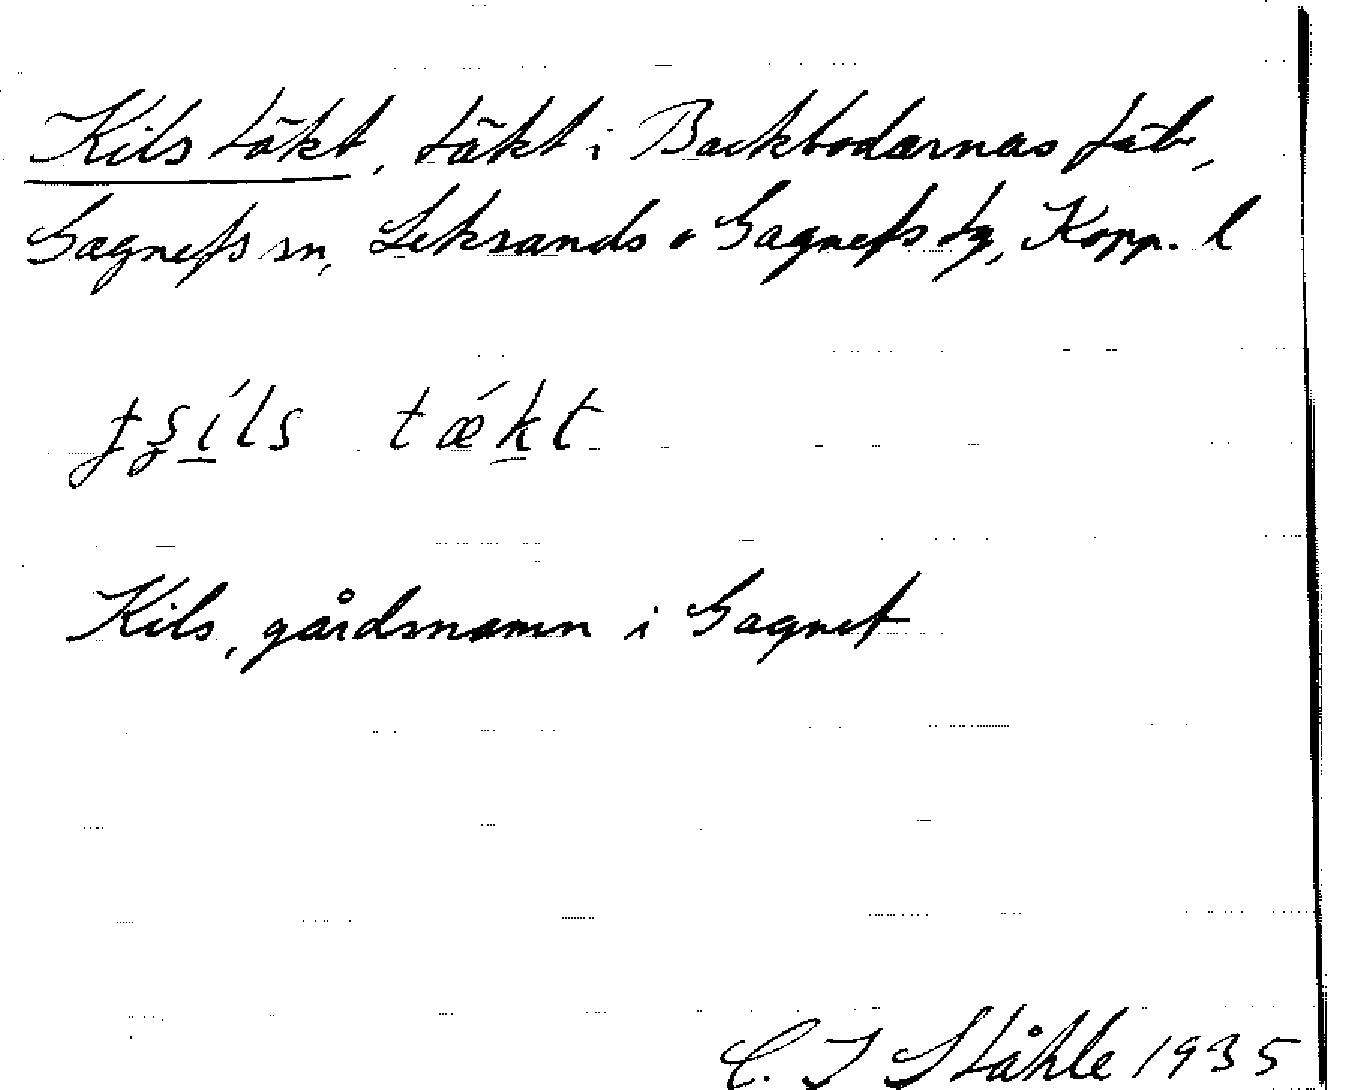 Kils täkt, täkt i Backbodarnas fäb,
Gagnefs sn, Leksands o Gagnefs tg, Kopp. l
kils, gårdsnamn i Gagnef
C. I Ståhle 1935